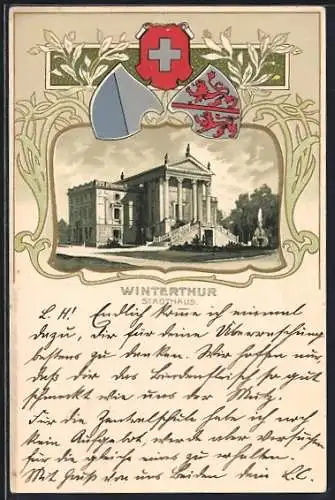 WINTERTHUR
STADTHAUS.
L. H! Endlich komme ich einmal
dazu, Dir für deine Überraschung
bestens zu danken. Wir hoffen nur
daß dir das Bindenfleisch so gut
schmeckt wie uns der
Für die Zentralschule habe ich noch
kein Aufgebot, werde aber versuchen
für die gleiche eins zu erhalten.
Mit Gruß von uns Beiden dein